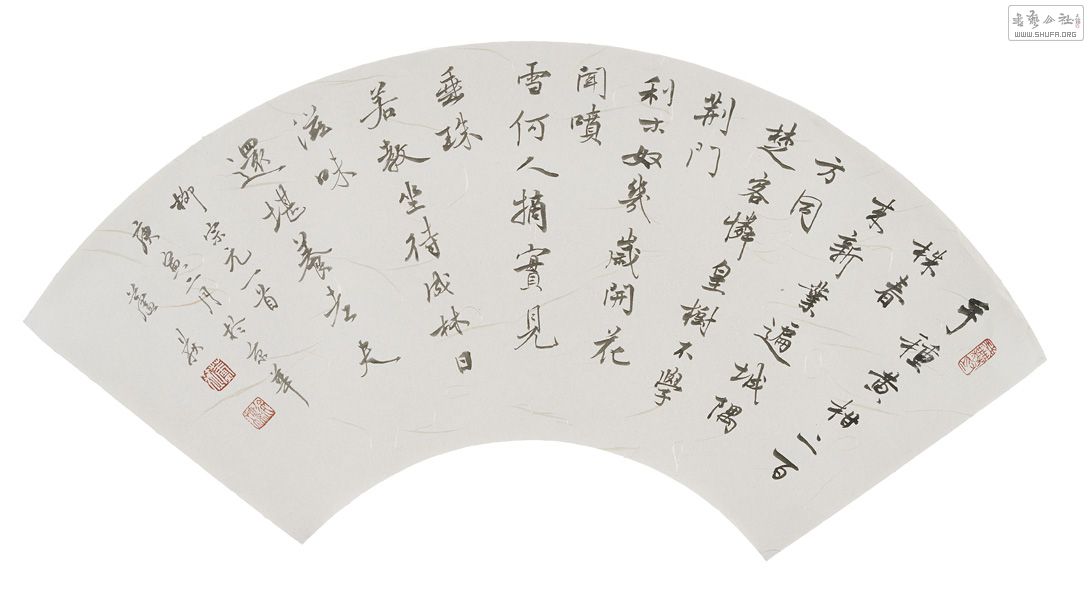 手種黃柑二百
株春
来新業遍城隅
方同
楚客憐皇樹不學
荆門
利木奴幾歲開花
聞噴
雪何人摘實見
垂珠
若教坐待成林日
滋味
還堪養老夫
柳宗元一首
庚寅二月於京華
書藝公社
WWW.SHUFA.ORG